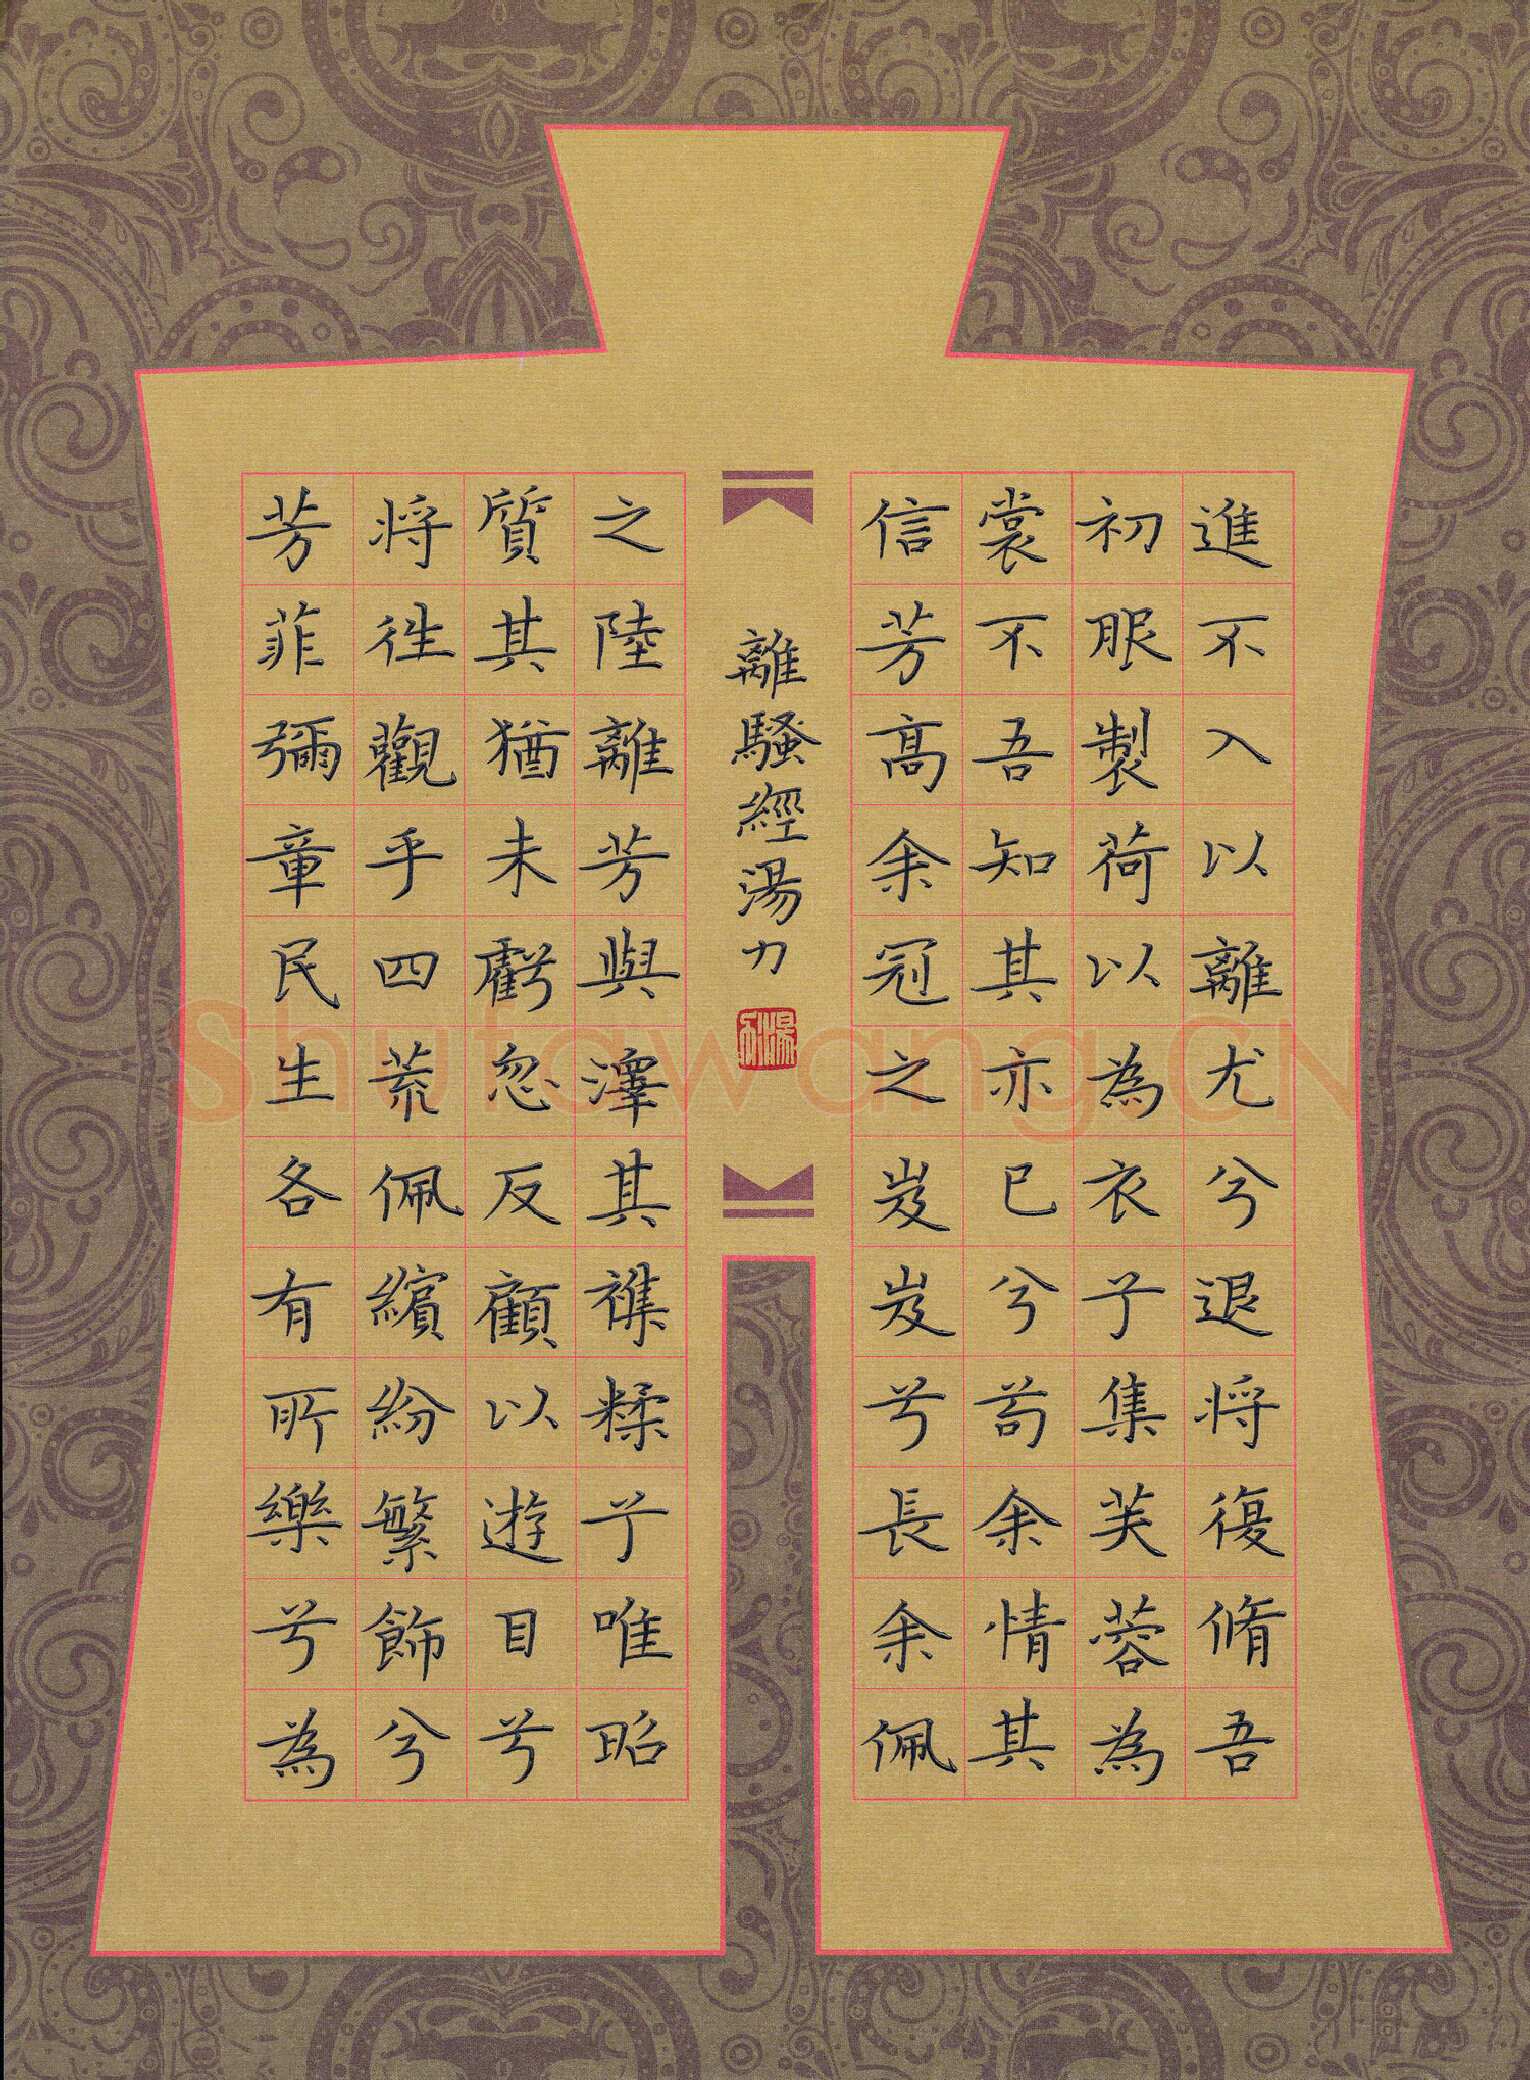 進不入以離尤兮退將復脩吾
初服製荷以為衣兮集芙蓉為
裳不吾知其亦已兮苟余情其
信芳高余冠之岌岌兮長余佩
離騷經湯力
之陸離芳與澤其襍糅兮唯昭
質其猶未虧忽反顧以遊目兮
將往觀乎四荒佩繽紛繁飾兮
芳菲彌章民生各有所樂兮為
Shufawang.CN